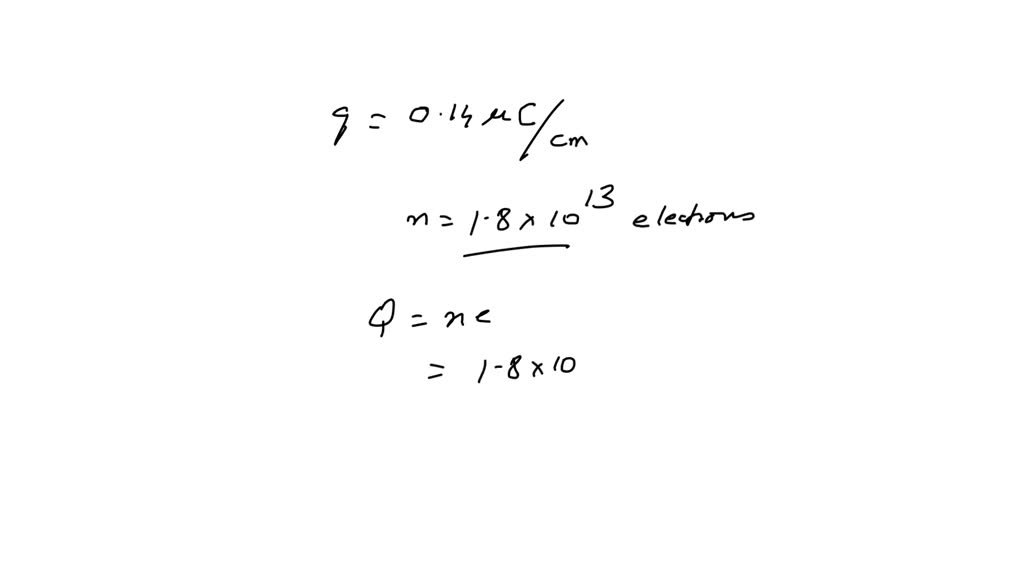 q = 0.14 μC/cm
n = 1.8 × 10¹³ electrons
Q = ne
= 1.8 × 10